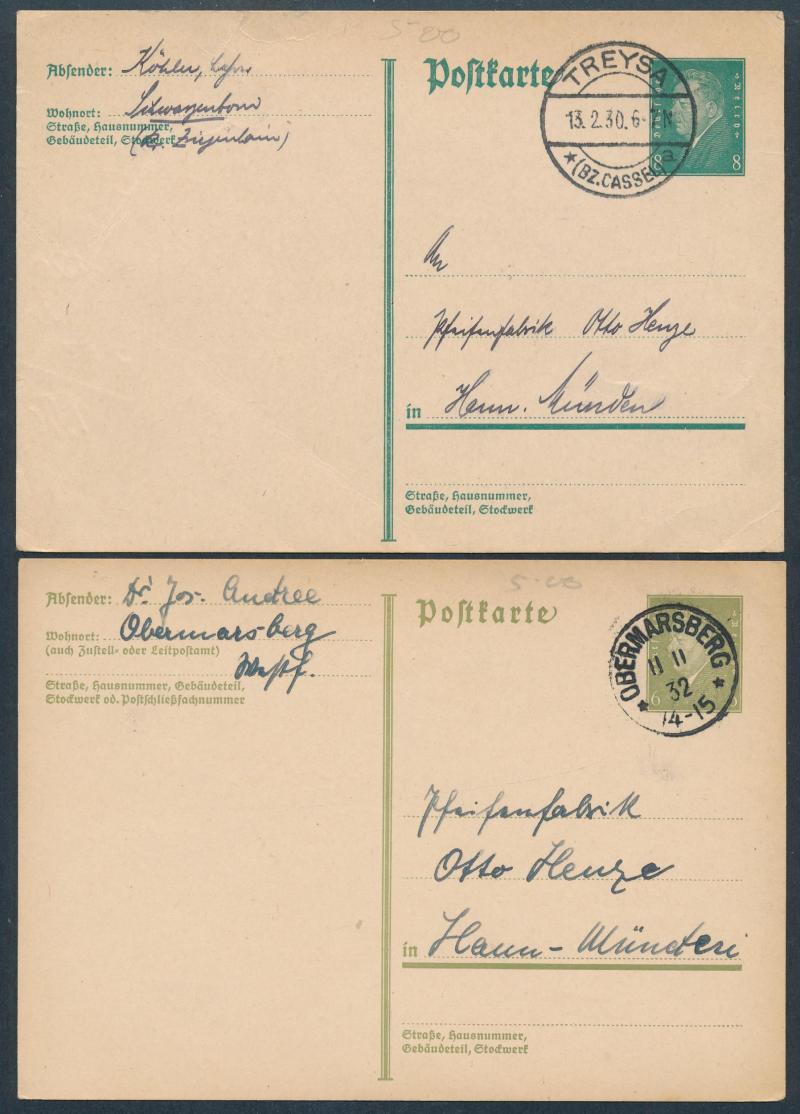 5-00
Absender: Köhler,
Wohnort: Schwarzenborn
Straße, Hausnummer,
Gebäudeteil, Stockwerk
(Bz. Ziegenhain)
Postkarte
TREYSA
13.2.30.6-7N
a
★(BZ.CASSEL)
8 8
An
Pfeifenfabrik Otto Henze
in Hann. Münden
Straße, Hausnummer,
Gebäudeteil, Stockwerk
5-00
Absender: Dr. Jos. Andree
Wohnort: Obermarsberg
(auch Zustell- oder Leitpostamt)
Westf.
Straße, Hausnummer, Gebäudeteil,
Stockwerk od. Postschließfachnummer
Postkarte
★ OBERMARSBERG ★
11 11
32
14-15
6
Pfeifenfabrik
Otto Henze
in Hann-Münden
Straße, Hausnummer,
Gebäudeteil, Stockwerk